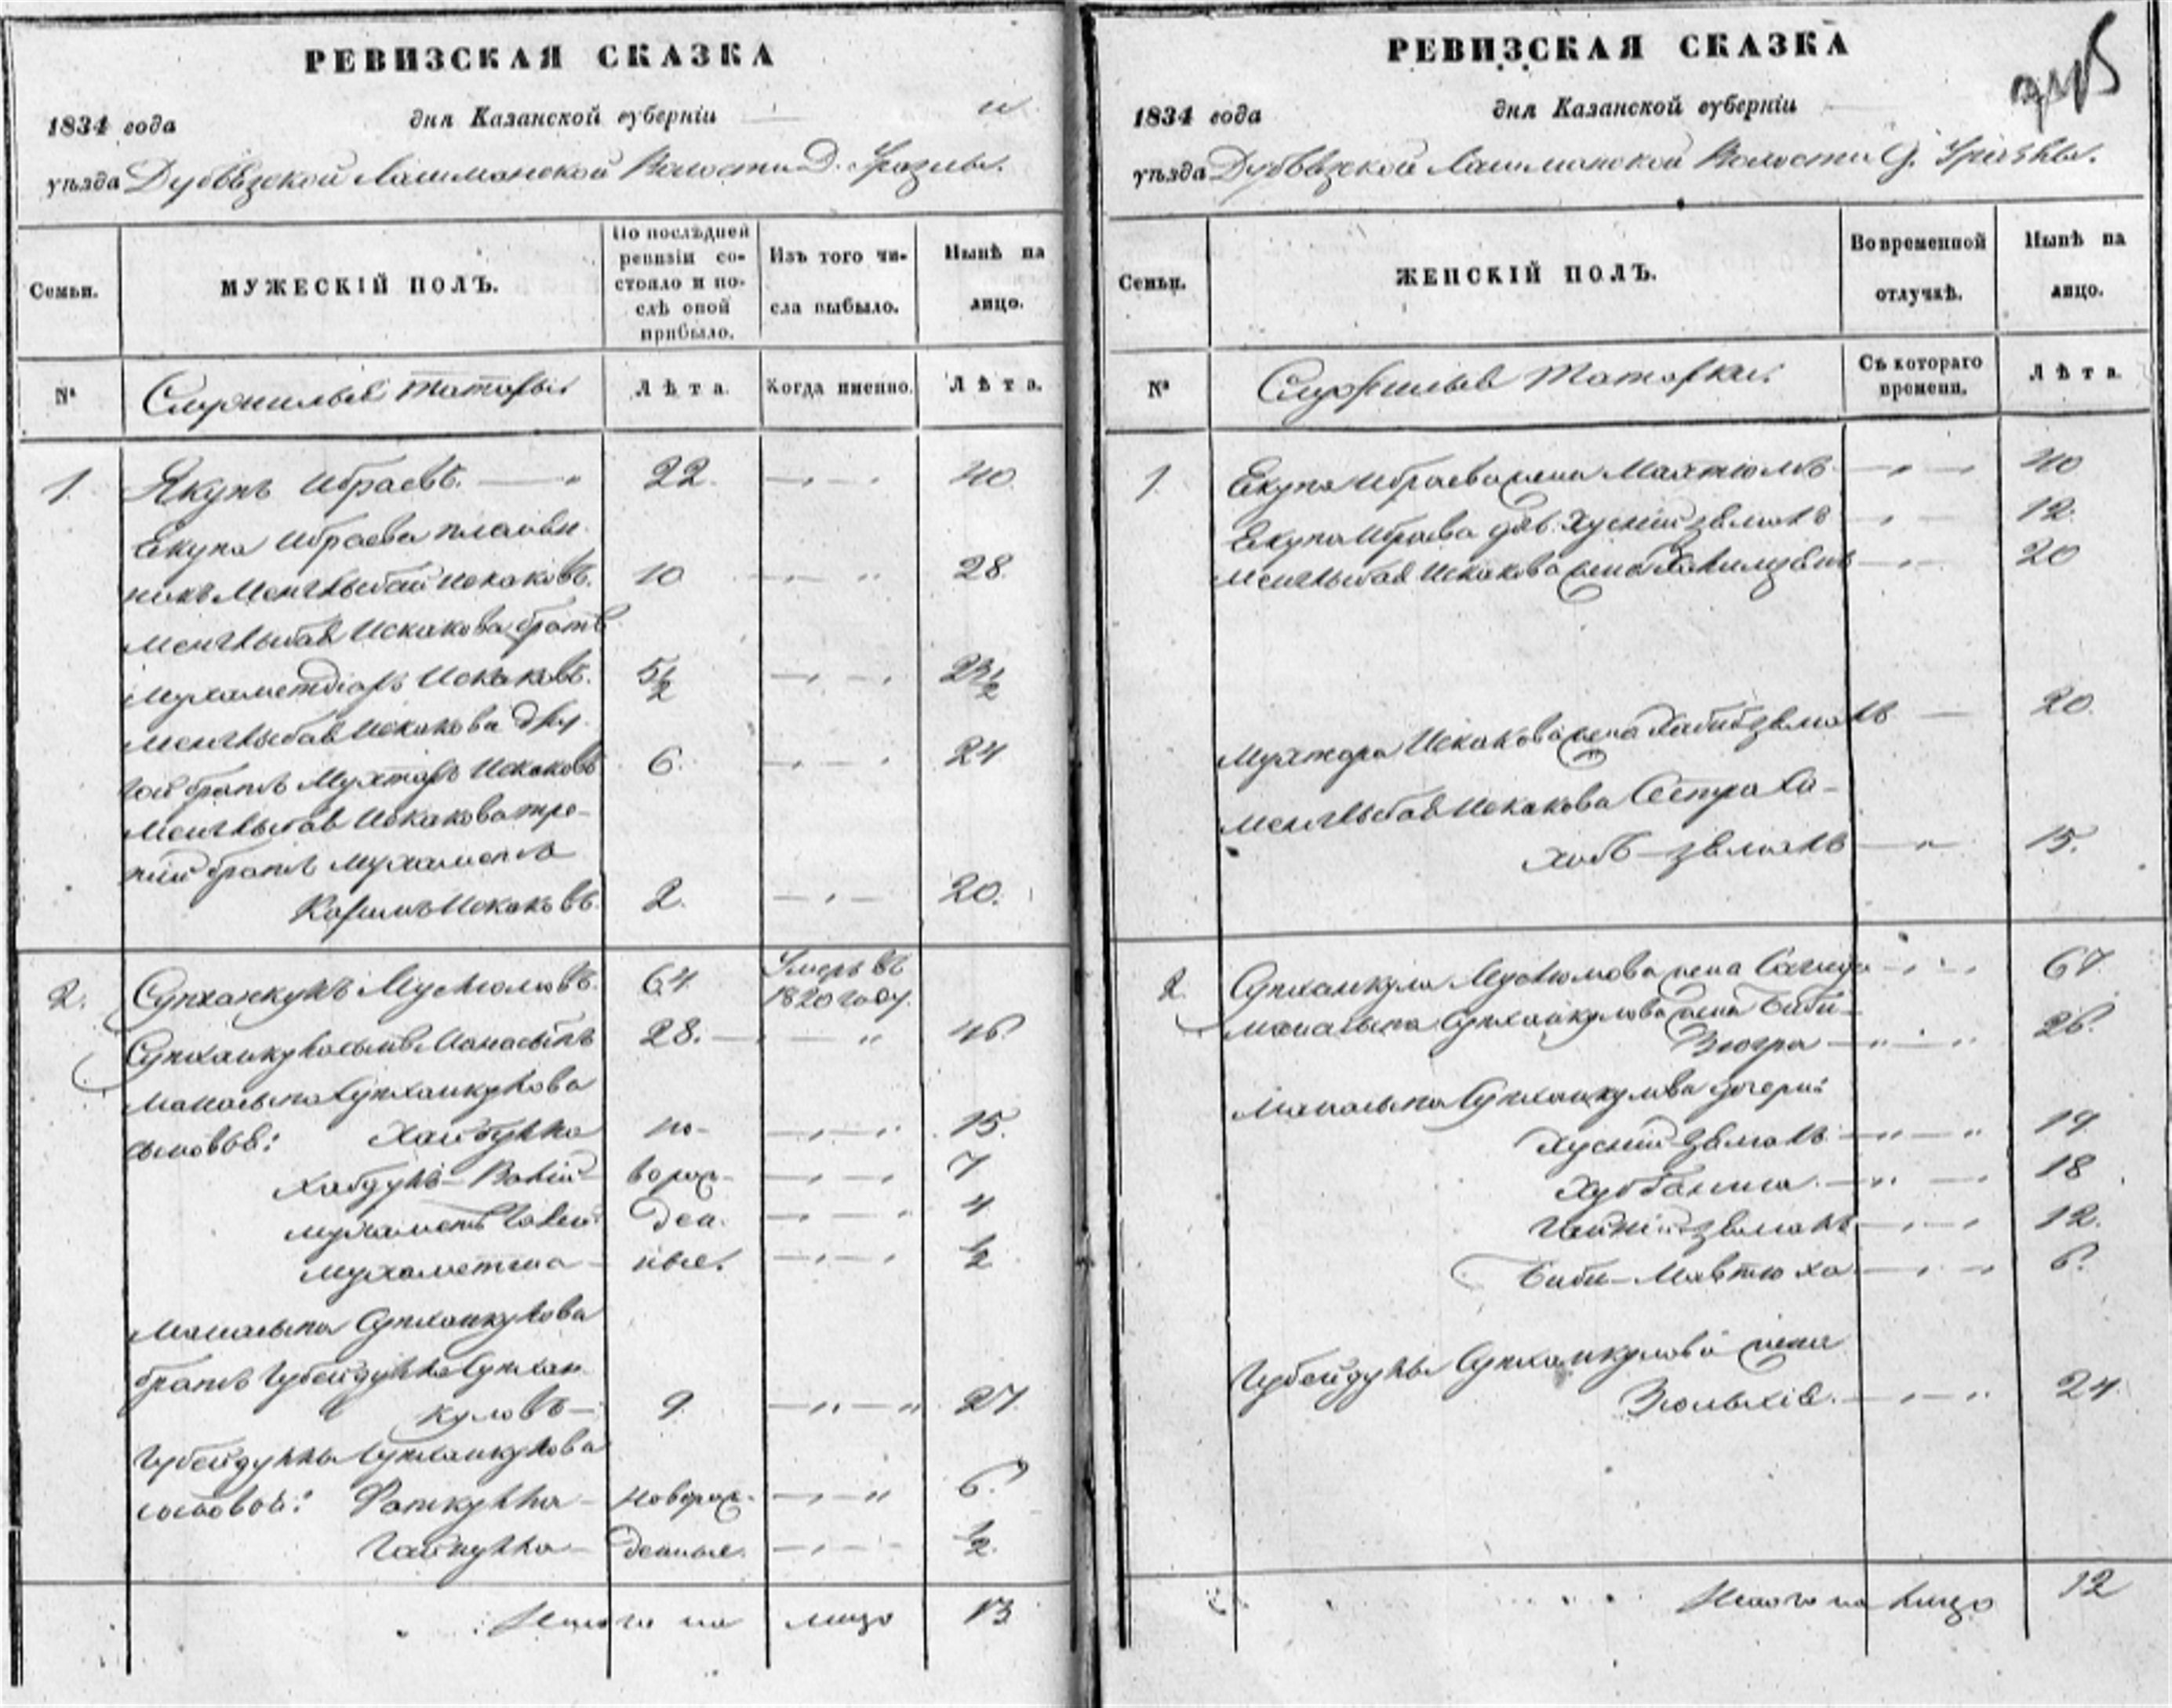 РЕВИЗСКАЯ СКАЗКА
1834 года дня Казанской губерніи
уѣзда Дубъязской Лашманской Волости Д.
Семьи.
МУЖЕСКІЙ ПОЛЪ.
По послѣдней ревизіи состояло и послѣ оной прибыло.
Изъ того числа выбыло.
Нынѣ на лицо.
№
Служилые татары
Лѣта.
Когда именно.
Лѣта.
1. Якупъ Ибраевъ. 22. 40
Екупа Ибраева племян
никъ Менглыбай Искаковъ. 10 28.
Менглыбая Искакова братъ
Мухаметдіаръ Искаковъ. 5½ 23½
Менглыбая Искакова дру
гой братъ Мухтаръ Искаковъ 6. 24
Менглыбая Искакова тре-
тій братъ Мухаметъ
Каримъ Искаковъ. 2. 20.
2. Супханкулъ 64 Умеръ въ 1820 году.
Супханкула сынъ Манасыпъ 28. 46
Манасыпа Супханкулова
сыновья: Хайбулла но- 15.
Хабдулъ-Валій ворож- 7
Мухаметъ Галей ден- 4
Мухаметша ные. ½
Манасыпа Супханкулова
братъ Губейдулла Супхан
куловъ 9 27
Губейдуллы Супханкулова
сыновья: Фаткулла новорож- 6.
Гайнулла денные. ½
Итого на лицо 13
РЕВИЗСКАЯ СКАЗКА
1834 года дня Казанской губерніи
уѣзда Дубъязской Лашманской Волости Д.
Семьи.
ЖЕНСКІЙ ПОЛЪ.
Во временной отлучкѣ.
Нынѣ на лицо.
№
Служилыя Татарки.
Съ котораго времени.
Лѣта.
1. Екупа Ибраева жена 40
Екупа Ибраева доч. Хусній зямалъ 12.
Менглыбая Искакова жена 20
Мухтара Искакова жена Хабибзямалъ 20.
Менглыбая Искакова Сестра Са-
хобъ-зямалъ 15.
2. Супханкула жена Сагида 67
Манасыпа Супханкулова жена Биби-
Зюгра 26.
Манасыпа Супханкулова дочери:
Хусній Зямалъ 19
18
Гайній-зямалъ 12.
Биби-Мавтюха 6.
Губейдуллы Супханкулова жена
24.
Итого на лицо 12